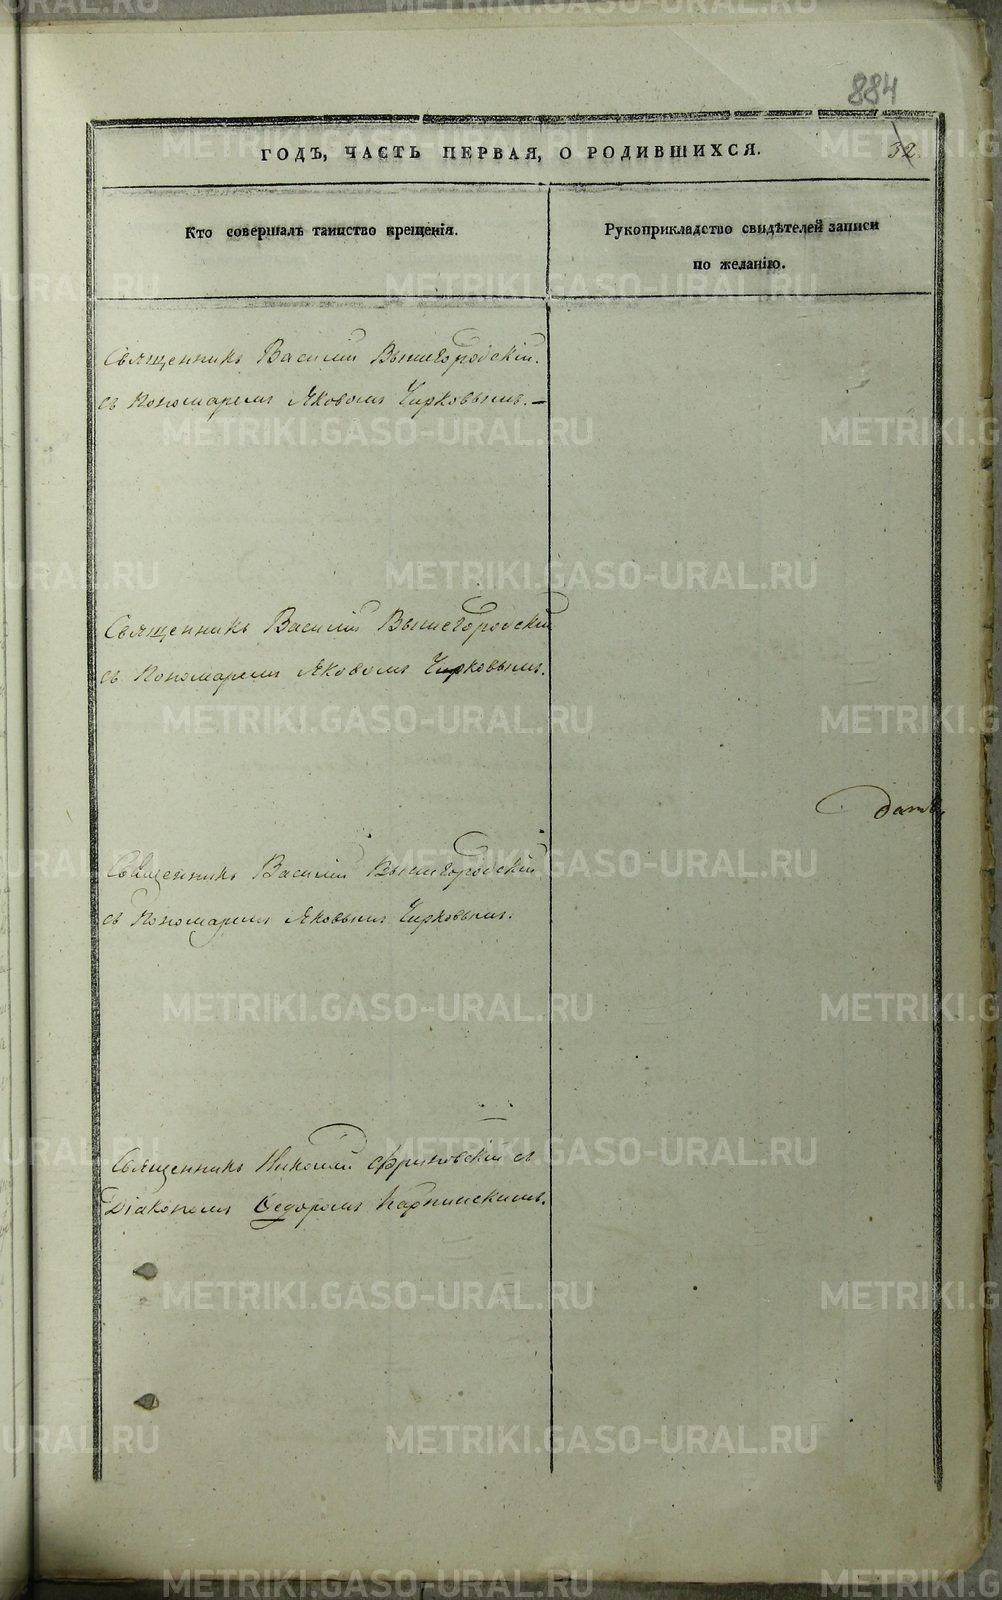 884
32.
ГОДЪ, ЧАСТЬ ПЕРВАЯ, О РОДИВШИХСЯ.
Кто совершалъ таинство крещенія.
Рукоприкладство свидѣтелей записи
по желанію.
Священникъ Василій Вышегородскій.
съ Пономаремъ Яковомъ Чирковымъ.—
Священникъ Василій Вышегородскій
съ Пономаремъ Яковомъ Чирковымъ.
Священникъ Василій Вышегородскій
съ Пономаремъ Яковымъ Чирковымъ.
Священникъ Николай съ
Діакономъ Ѳедоромъ Карпинскимъ.
METRIKI.GASO-URAL.RU